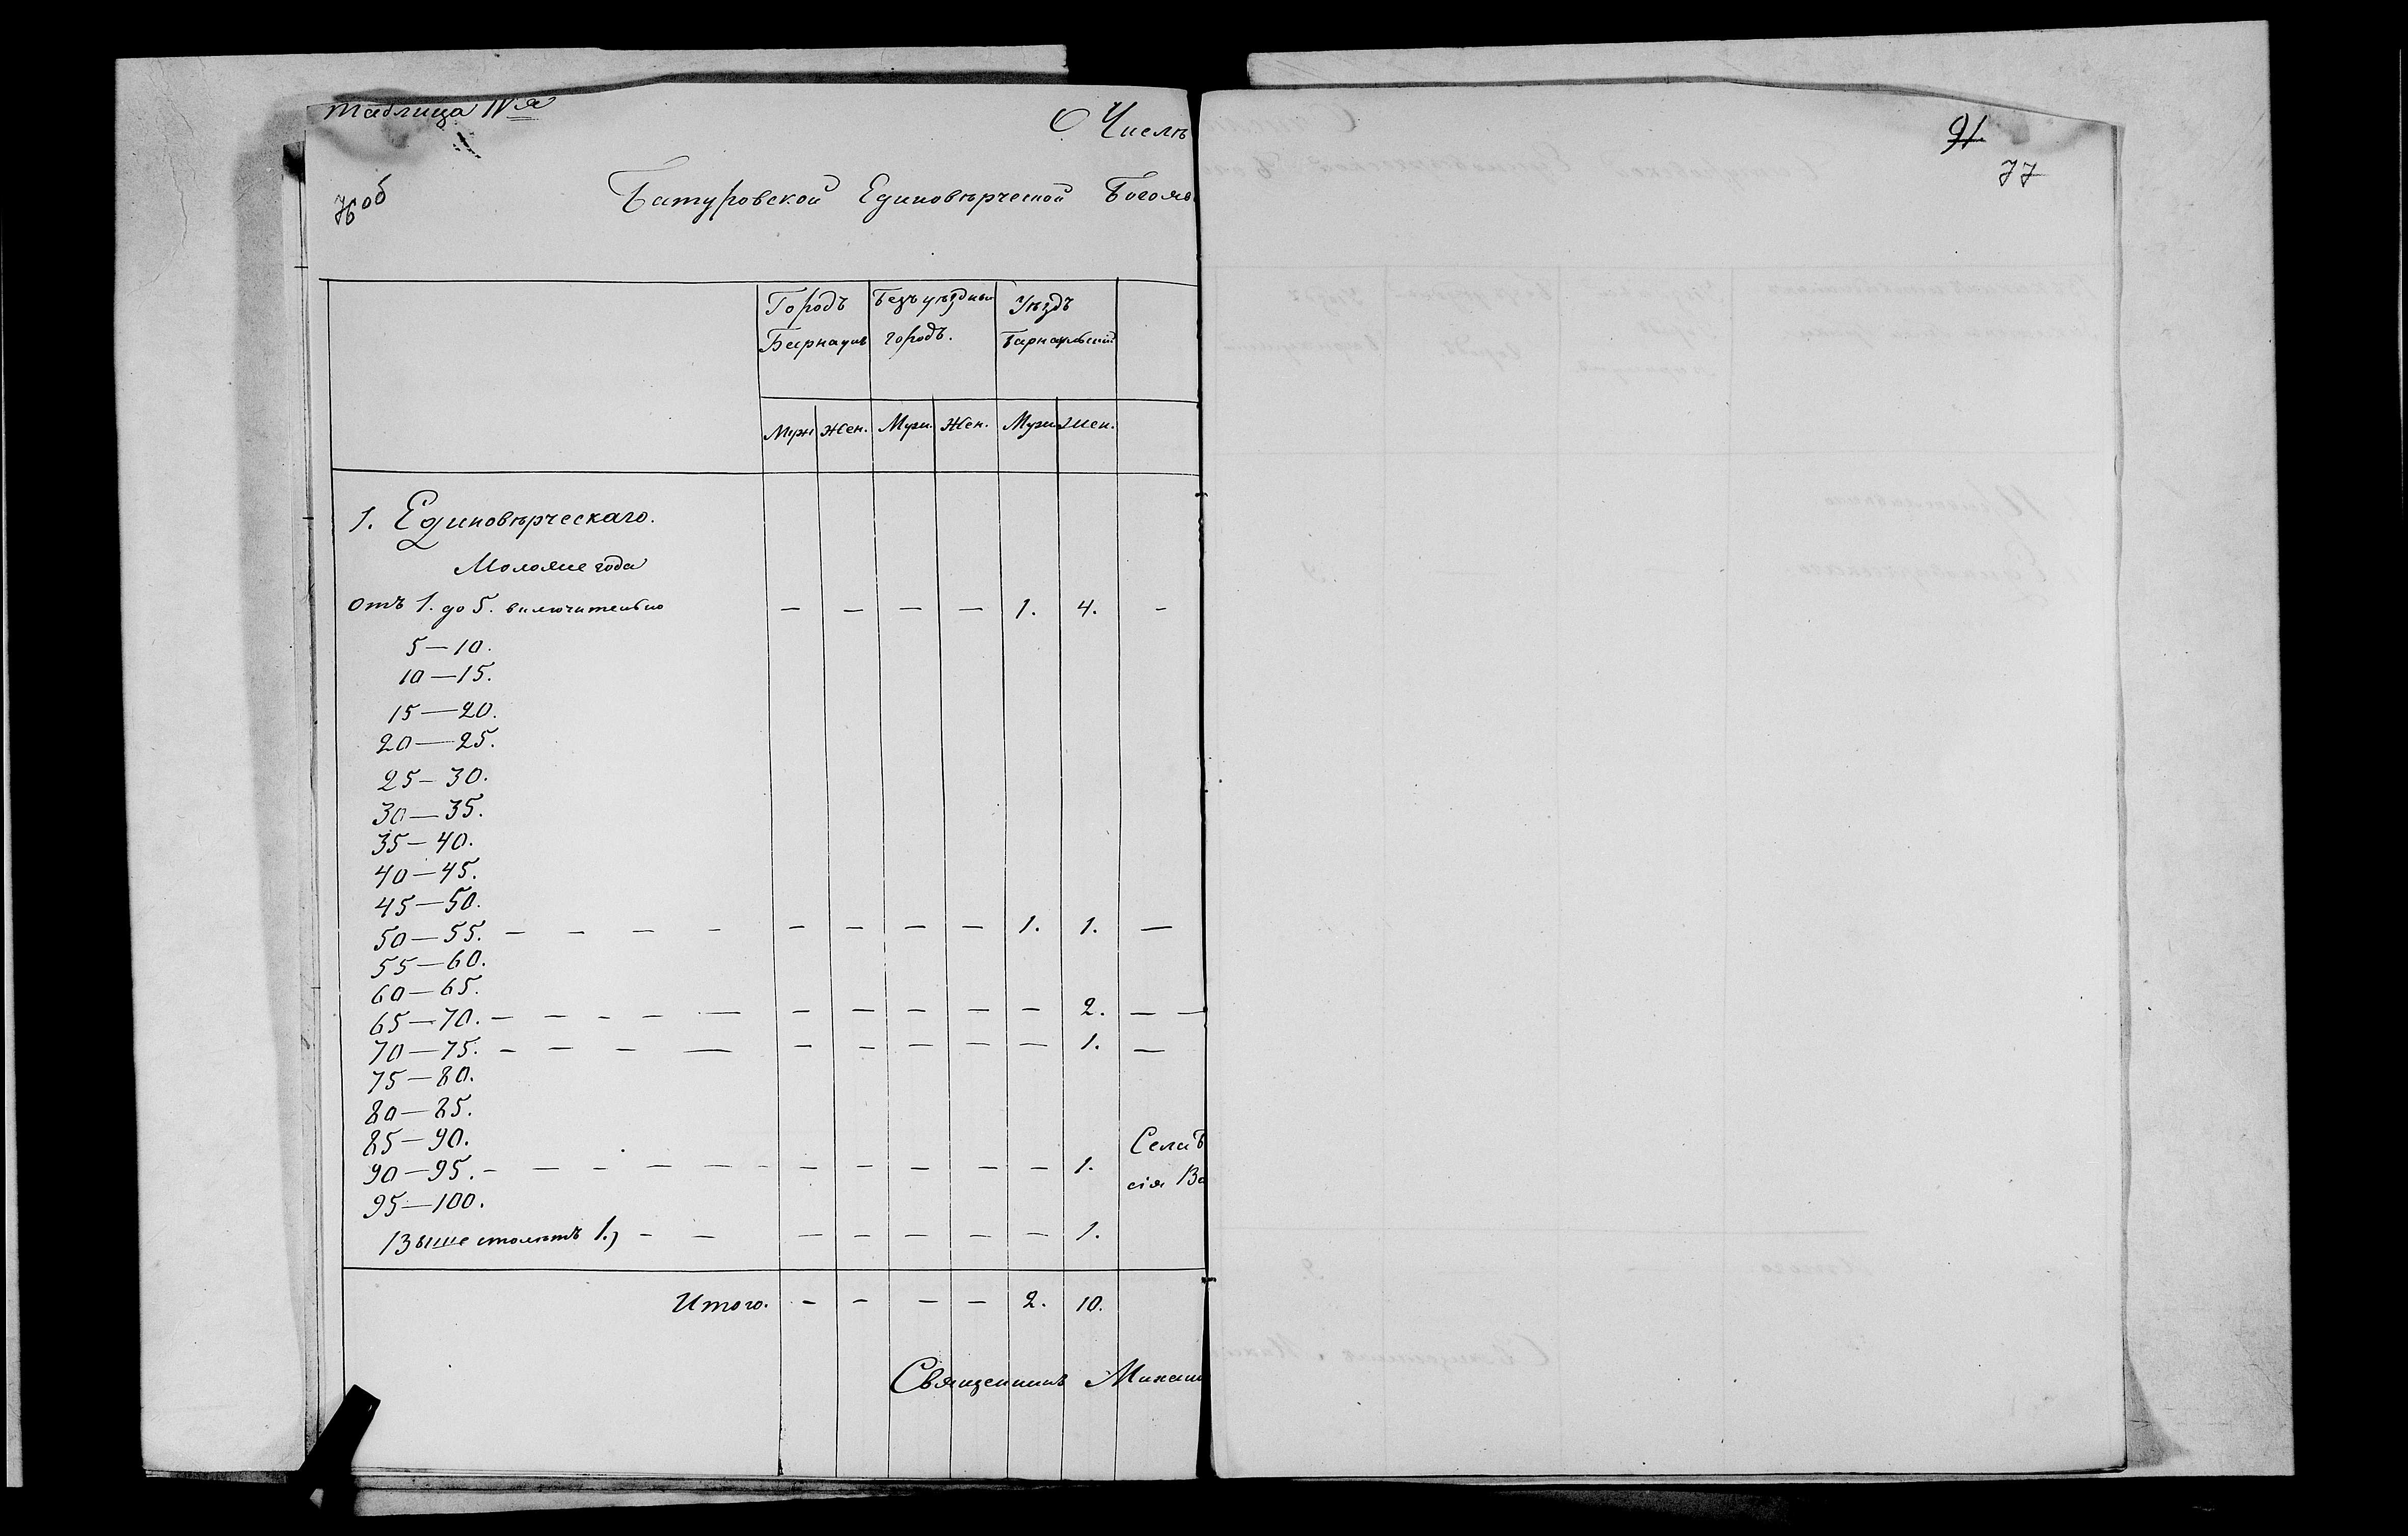 Таблица IVя
О Числѣ
76 об
Батуровской Единовѣрческой Богояв
Городъ Барнаулъ
Безъуѣздный городъ.
Уѣздъ Барнаульскій
Муж Жен. Муж. Жен. Муж. Жен.
1. Единовѣрческаго.
Моложе года
Отъ 1. до 5. включительно — — — — 1. 4. -
5—10.
10—15.
15—20.
20—25.
25—30.
30—35.
35—40.
40—45.
45—50.
50—55. — — — — — — — — 1. 1. —
55—60.
60—65.
65—70. — — — — — — — — — — 2. — —
70—75. — — — — — — — — — 1. —
75—80.
80—85.
85—90.
90—95. — — — — — — — — — — 1.
95—100.
Села Б
сія Ва
Выше столѣтъ 1.) — — — — — — — 1.
Итого. - - — — 2. 10.
Священникъ Михаи
91
77